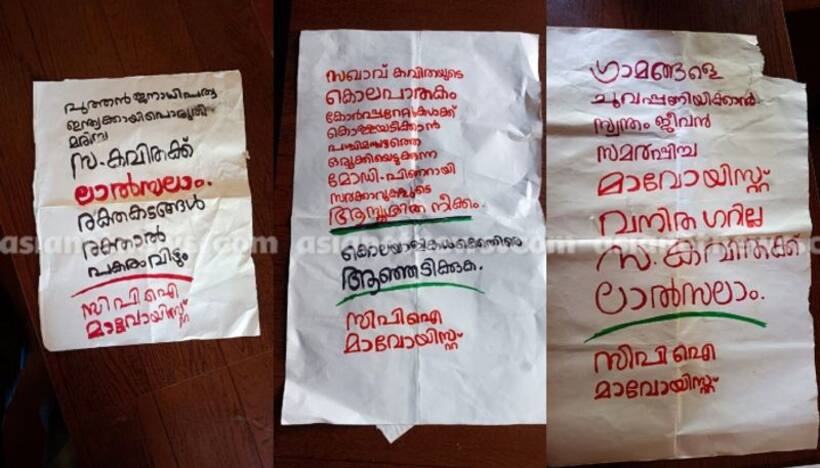 പുത്തൻ ജനാധിപത്യ
ഇന്ത്യക്കായി പൊരുതി
മരിച്ച
സ. കവിതക്ക്
ലാൽസലാം.
രക്തകടങ്ങൾ
രക്തത്താൽ
പകരംവീട്ടും
സിപിഐ
മാവോയിസ്റ്റ്
സഖാവ് കവിതയുടെ
കൊലപാതകം
കോർപ്പറേറ്റുകൾക്ക്
കൊള്ളയടിക്കാൻ
പശ്ചിമഘട്ടത്തെ
ഒരുക്കിയെടുക്കുന്ന
മോഡി-പിണറായി
സർക്കാറുകളുടെ
ആസൂത്രിത നീക്കം.
കൊലയാളികൾക്കെതിരെ
ആഞ്ഞടിക്കുക.
സിപിഐ
മാവോയിസ്റ്റ്
ഗ്രാമങ്ങളെ
ചുവപ്പണിയിക്കാൻ
സ്വന്തം ജീവൻ
സമർപ്പിച്ച
മാവോയിസ്റ്റ്
വനിത ഗറില്ല
സ. കവിതക്ക്
ലാൽസലാം.
സിപിഐ
മാവോയിസ്റ്റ്